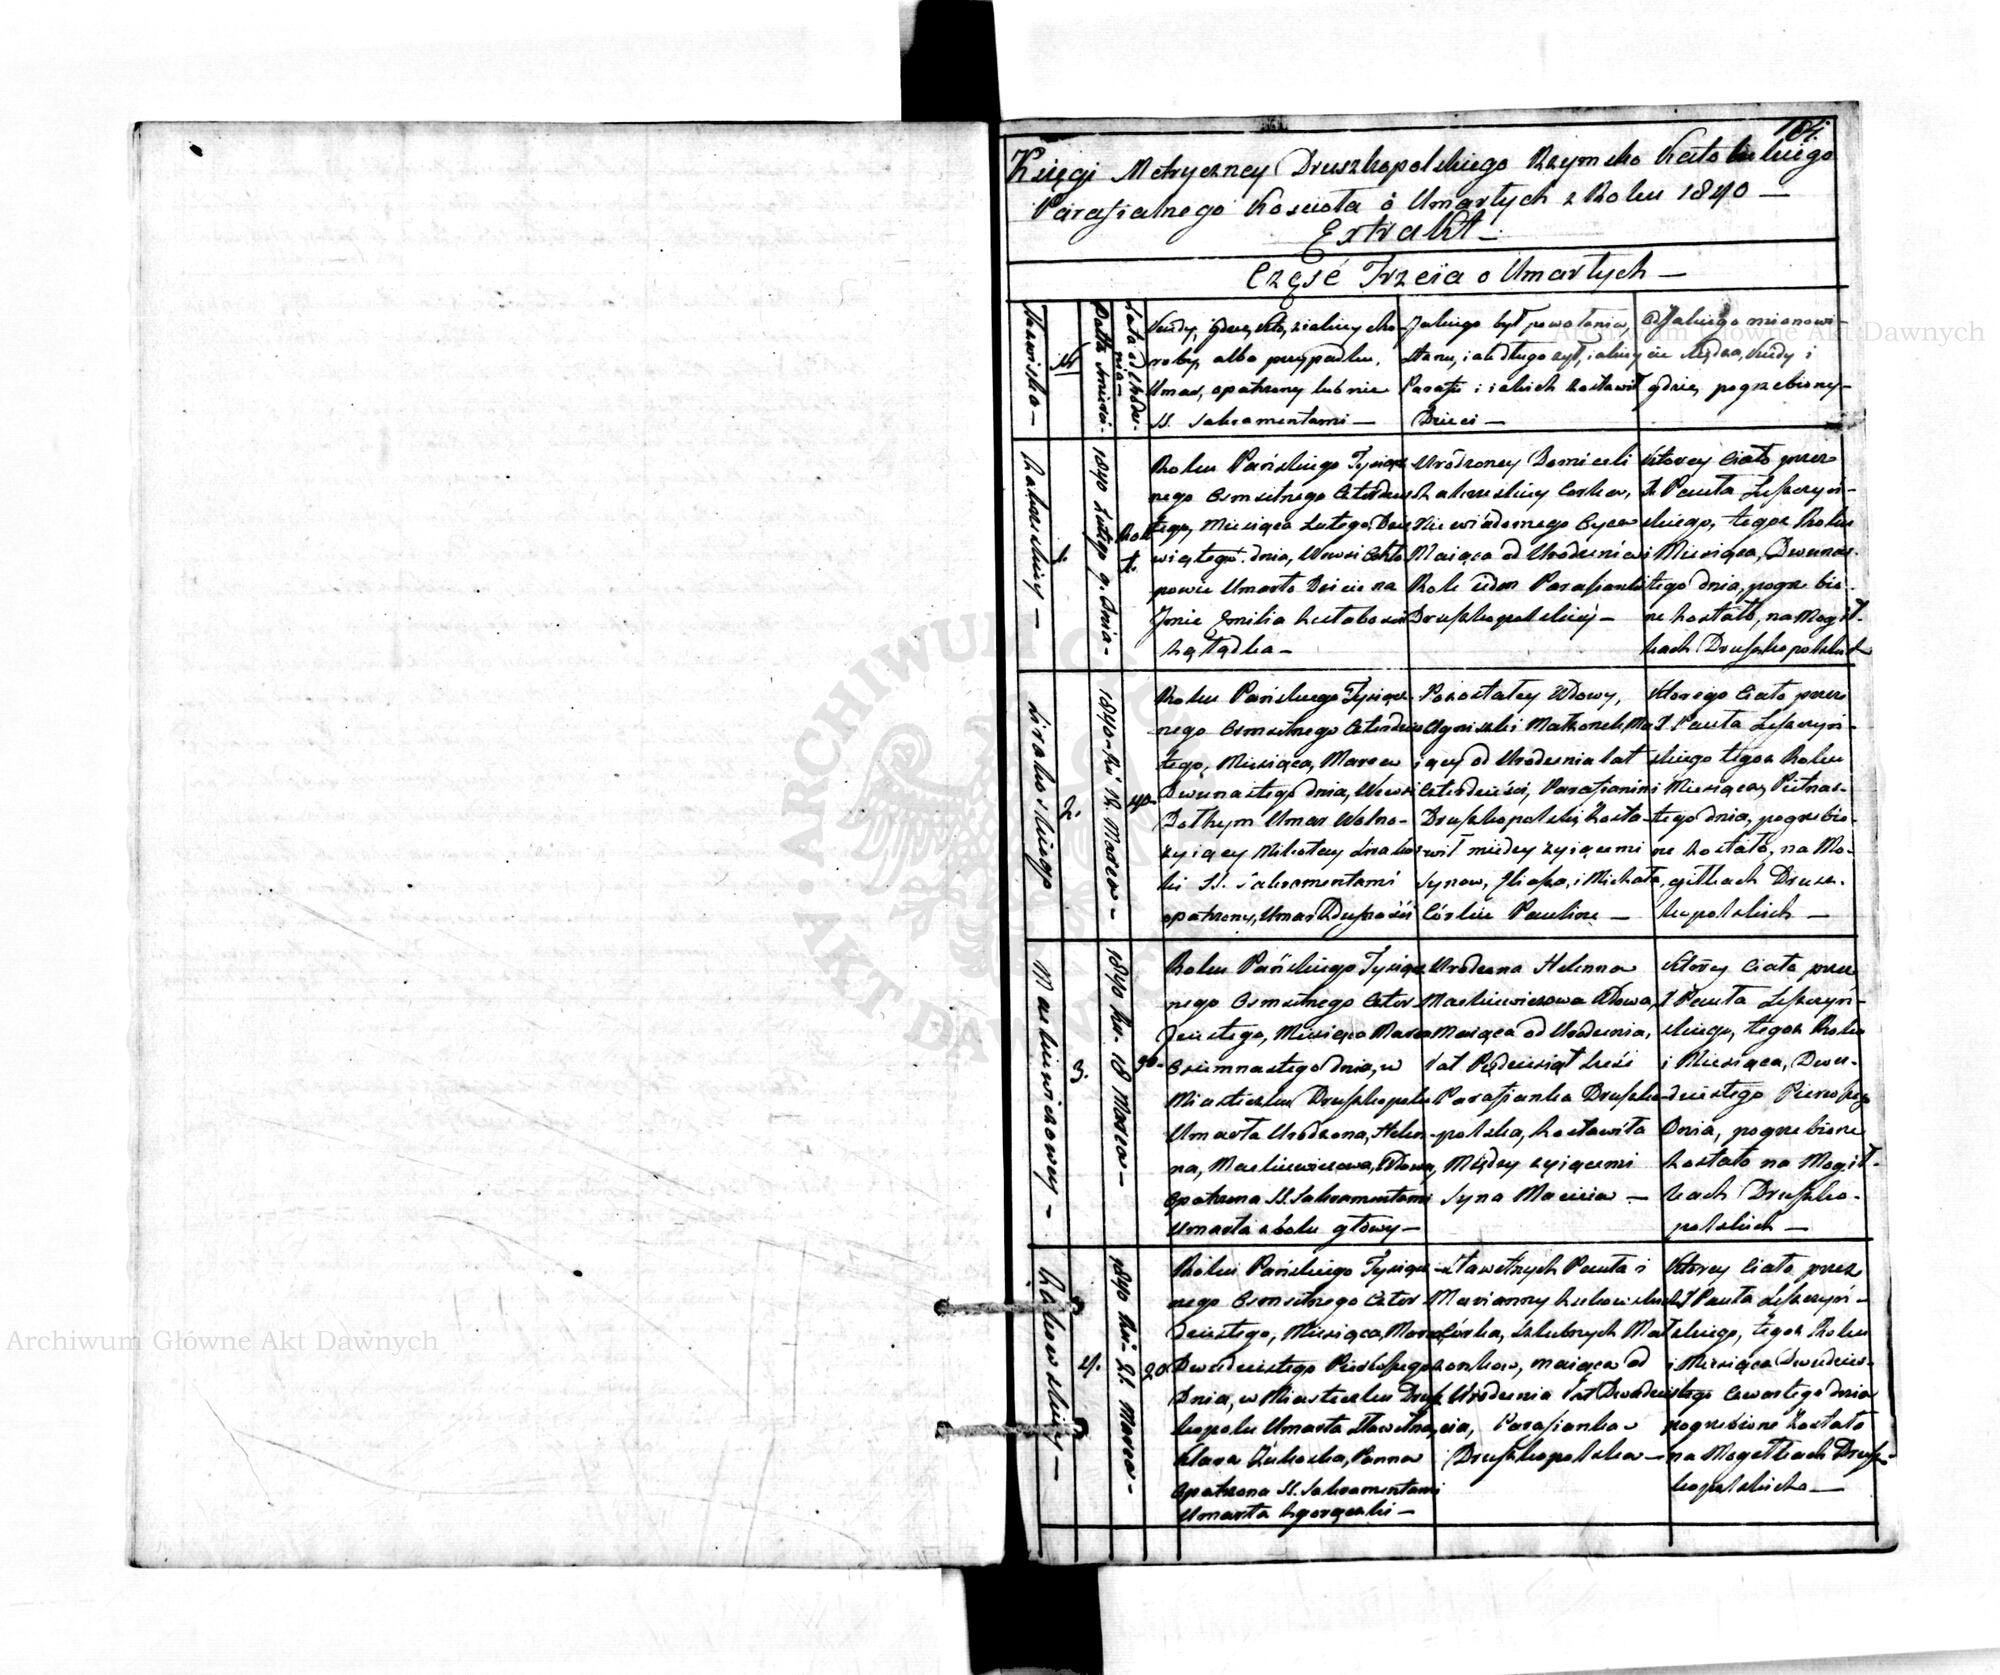 184.
Księgi Metryczney Druszkopolskiego Rzymsko Katolickiego
Parafialnego Koscioła o Umarłych z Roku 1840 —
Extrakt —
Część Trzeia o Umarłych —
Nazwisko —
N
Datta śmierci.
Lata od Urodze-
nia —
Kiedy, gdzie, kto, z iakiey cho-
roby, albo przypadku,
Umar, opatrzony lub nie
SS. Sakramentami —
Jakiego był powołania,
Stanu, iak długo żył, iakiey
Parafii i iakich zostawił
Dzieci —
Od Jakiego mianowi
cie Xiędza, kiedy i
gdzie, pogrzebiony —
1.
1840 Lutego 9. Dnia —
Rok
1.
Roku Pańskiego Tysiącz
nego Osmsetnego Czterdzies
tego, Miesiąca Lutego, Dzie
wiątego dnia, Wewsi
powie Umarło Dziecie na
Jmie Emilia
Urodzoney Domiceli
Corka,
Niewiadomego Oyca
Maiąca od Urodzenia
Rok ieden Parafianka
Druszkopolskiey —
Ktorey Ciało przez
X Pawła Leszczyń-
skiego, tegoż Roku
i Miesiąca, Dwunas-
tego dnia, pogrzebio-
ne zostało, na Mogił-
kach Druszkopolskich
2.
1840 — Ru 12. Marca —
40 —
Roku Pańskiego Tysiącz-
nego Osmsetnego Czterdzies
tego, Miesiąca, Marca
Dwunastego dnia, Wewsi
Umar Wolno-
żyiący Mikołay
ki SS. Sakramentami
opatrzony, Umar
Pozostałey Wdowy,
Agniszki Małżonek, Ma
iący od Urodzenia lat
Czterdzieści, Parafianin
Druszkopolski, Zosta-
wił między żyiącemi
Synow, i Michała,
Córkie Pauline —
Ktorego Ciało przez
X Pawła Leszczyń-
skiego tegoż Roku
i Miesiąca, Pietnas-
tego dnia, pogrzebio-
ne zostało, na Mo-
giłkach Drusz-
kopolskich —
Mackiewiczowey —
3.
1840 Ru. 18 Marca —
Roku Pańskiego Tysiącz
nego Osmsetnego Czter
dziestego, Miesiąca Marca
Osiemnastego dnia, w
Miasteczku Druszkopolu
Umarła Urodzona, Helen-
na, Mackiewiczowa, Wdowa,
Opatrzona SS. Sakramentami
Umarła z bolu głowy —
Urodzona Helenna
Mackiewiczowa Wdowa,
Maiąca od Urodzenia,
lat
Parafianka Druszko-
polska, Zostawiła
Między żyiącemi
Syna Macieia —
Ktorey Ciało przez
X Pawła Leszczyń-
skiego, tegoż Roku
i Miesiąca, Dwu-
dziestego Pierwszego
Dnia, pogrzebione
zostało na Mogił-
kach Druszko-
polskich —
4.
1840 Ru. 21 Marca —
20
Roku Pańskiego Tysiącz
nego Osmsetnego Czter
dziestego, Miesiąca, Marca
Dwudziestego Pierwszego
Dnia, w Miasteczku Drusz
kopolu Umarła Sławetna,
Klara Żukoska, Panna
Opatrzona SS. Sakramentami
Umarła z gorączki —
Sławetnych Pawła i
Marianny
Córka, Szlubnych Mał
żonkow, maiąca od
Urodzenia lat Dwadzieś
cia, Parafianka
Druszkopolska —
Ktorey Ciało przez
X Pawła Leszczyń-
skiego, tegoż Roku
i Miesiąca Dwudzies-
tego Czwartego dnia
pogrzebione zostało
na Mogiłkach Drusz-
kopolskich —
Archiwum Główne Akt Dawnych
Archiwum Główne Akt Dawnych
ARCHIWUM GŁÓWNE
AKT DAWNYCH